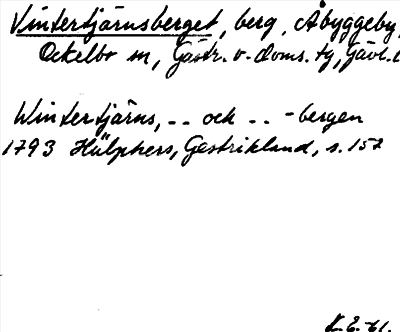 Vintertjärnsberget, berg, Åbyggeby,
Ockelbo sn, Gästr. v. doms. tg, Gävl. l
Wintertjärns, -- och -- -bergen
1793 Hülphers, Gestrikland, s. 157
K.E. -61.